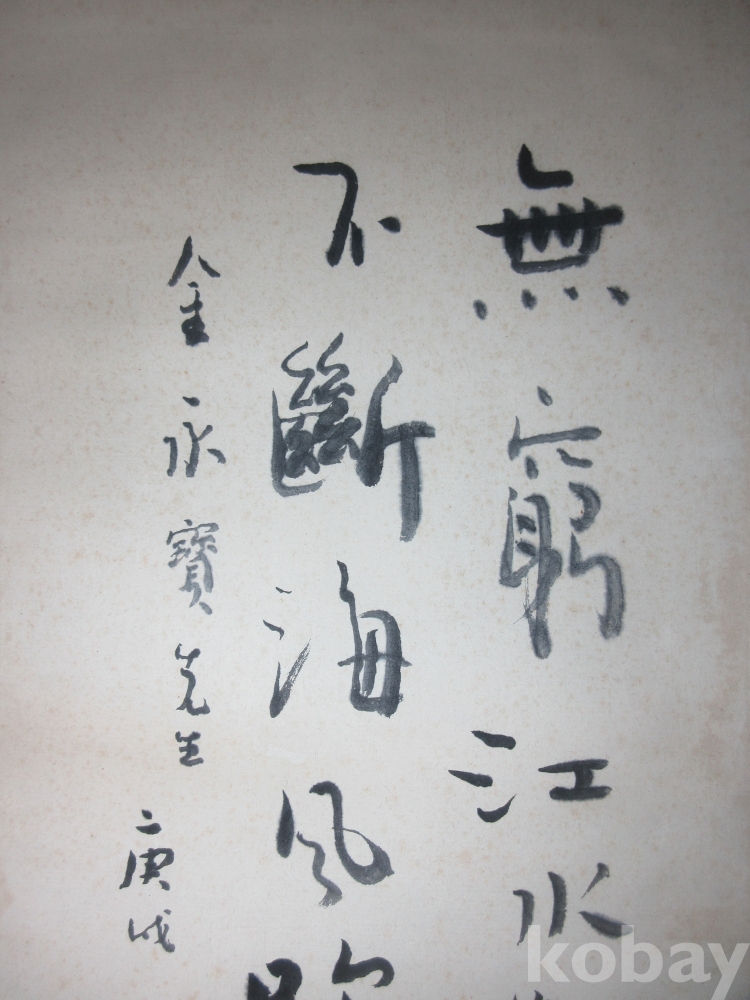 無窮江水
不斷海風
金永寶先生
庚戌
kobay